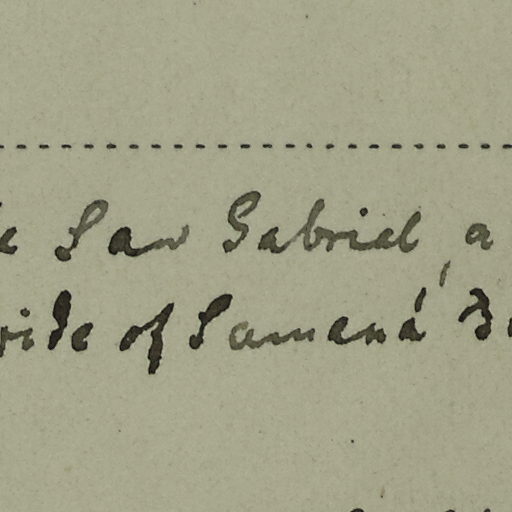 San Gabriel, a
side of Samaná